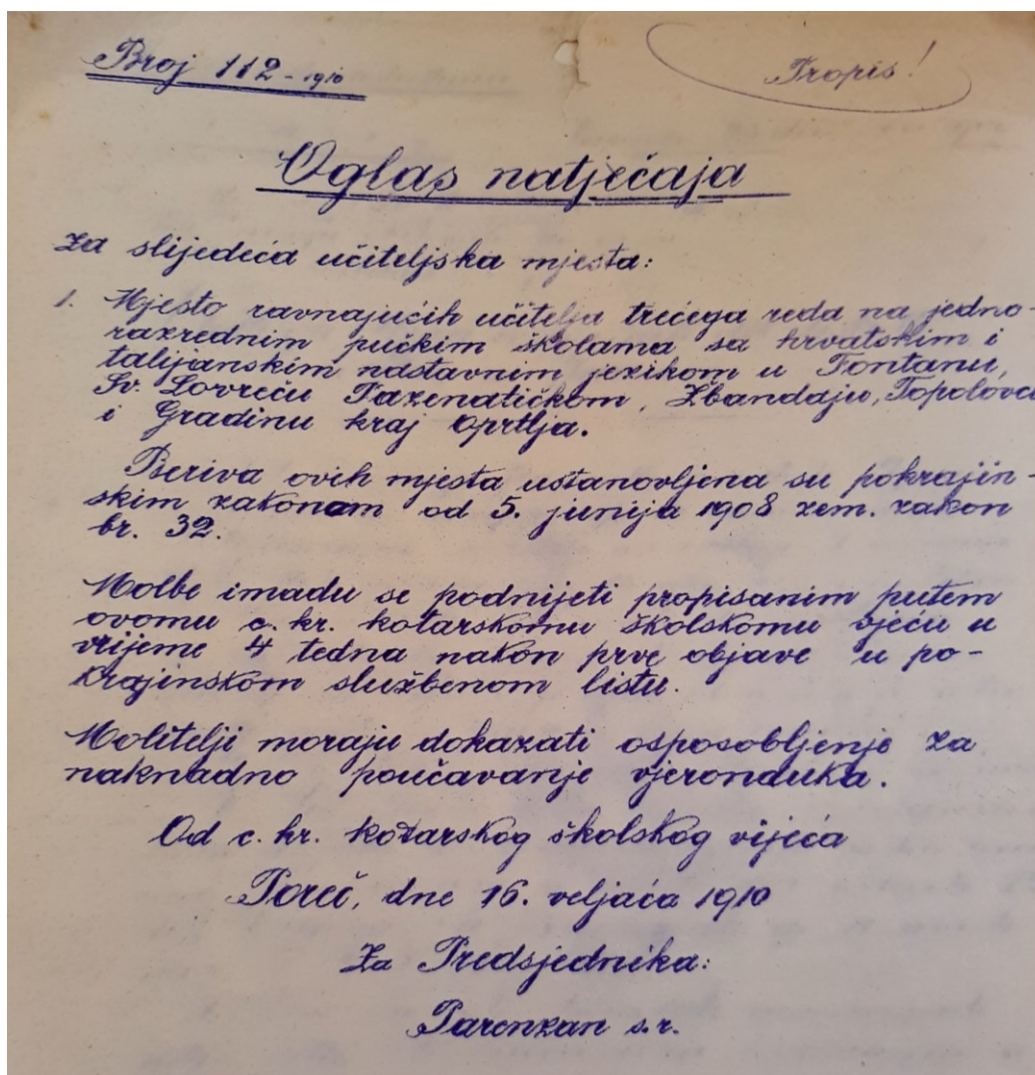 Broj 112-1910
Propis!
Oglas natječaja
za slijedeća učiteljska mjesta:
1. Mjesto ravnajućih učitelja trećega reda na jedno-
razrednim pučkim školama sa hrvatskim i
talijanskim nastavnim jezikom u Fontanu,
Sv. Lovreču Pazenatičkom, Žbandaju, Topolovcu
i Gradinu kraj Oprtlja.
Beriva ovih mjesta ustanovljena su pokrajin-
skim zakonom od 5. junija 1908 zem. zakon
br. 32.
Molbe imadu se podnijeti propisanim putem
ovomu c. kr. kotarskomu školskomu vjeću u
vrijeme 4 tedna nakon prve objave u po-
krajinskom službenom listu.
Molitelji moraju dokazati osposobljenje za
naknadno poučavanje vjeronauka.
Od c. kr. kotarskog školskog vijeća
Poreč, dne 16. veljača 1910
Za Predsjednika:
Parenzan s.r.